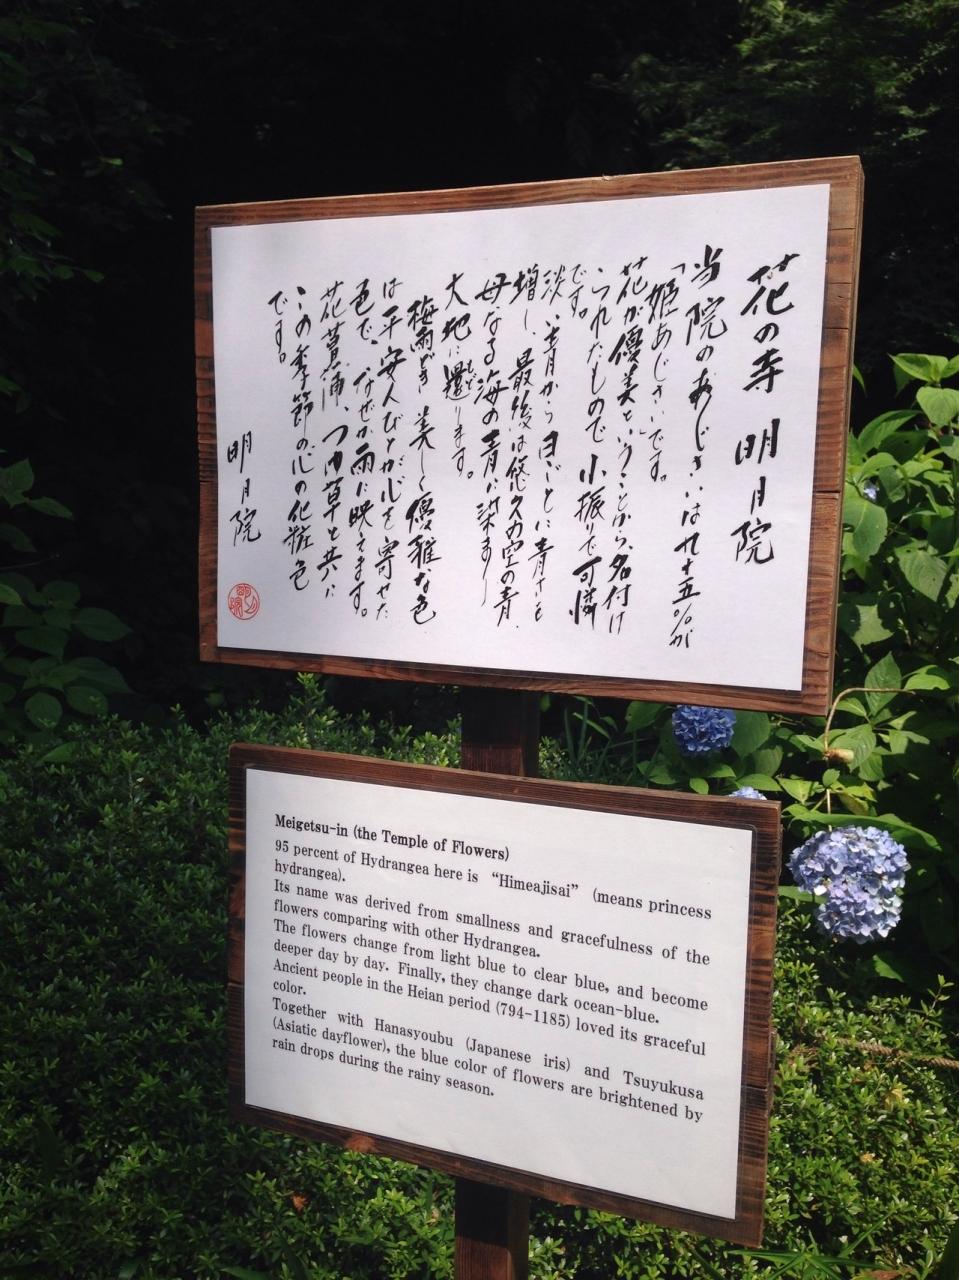 花の寺 明月院
当院のあじさいは九十五%が
「姫あじさい」です。
花が優美ということから、名付け
られたもので 小振りで可憐
です。
淡い青から日ごとに青さも
増し、最後は悠久の空の青、
母なる海の青に染まり
大地に還ります。
もど
梅雨どき 美しく優雅な色
は平安人びとが心を寄せた
色で、なぜか雨に映えます。
花菖蒲、つゆ草と共に
この季節の心の化粧色
です。
明月院
Meigetsu-in (the Temple of Flowers)
95 percent of Hydrangea here is “Himeajisai” (means princess
hydrangea).
Its name was derived from smallness and gracefulness of the
flowers comparing with other Hydrangea.
The flowers change from light blue to clear blue, and become
deeper day by day. Finally, they change dark ocean-blue.
Ancient people in the Heian period (794-1185) loved its graceful
color.
Together with Hanasyoubu (Japanese iris) and Tsuyukusa
(Asiatic dayflower), the blue color of flowers are brightened by
rain drops during the rainy season.